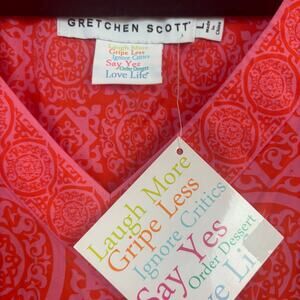 GRETCHEN SCOTT
L
Made in China
Laugh More
Gripe Less
Ignore Critics
Say Yes
Order Dessert
Love Life!
Laugh More
Gripe Less
Ignore Critics
Say Yes
Order Dessert
ve Li